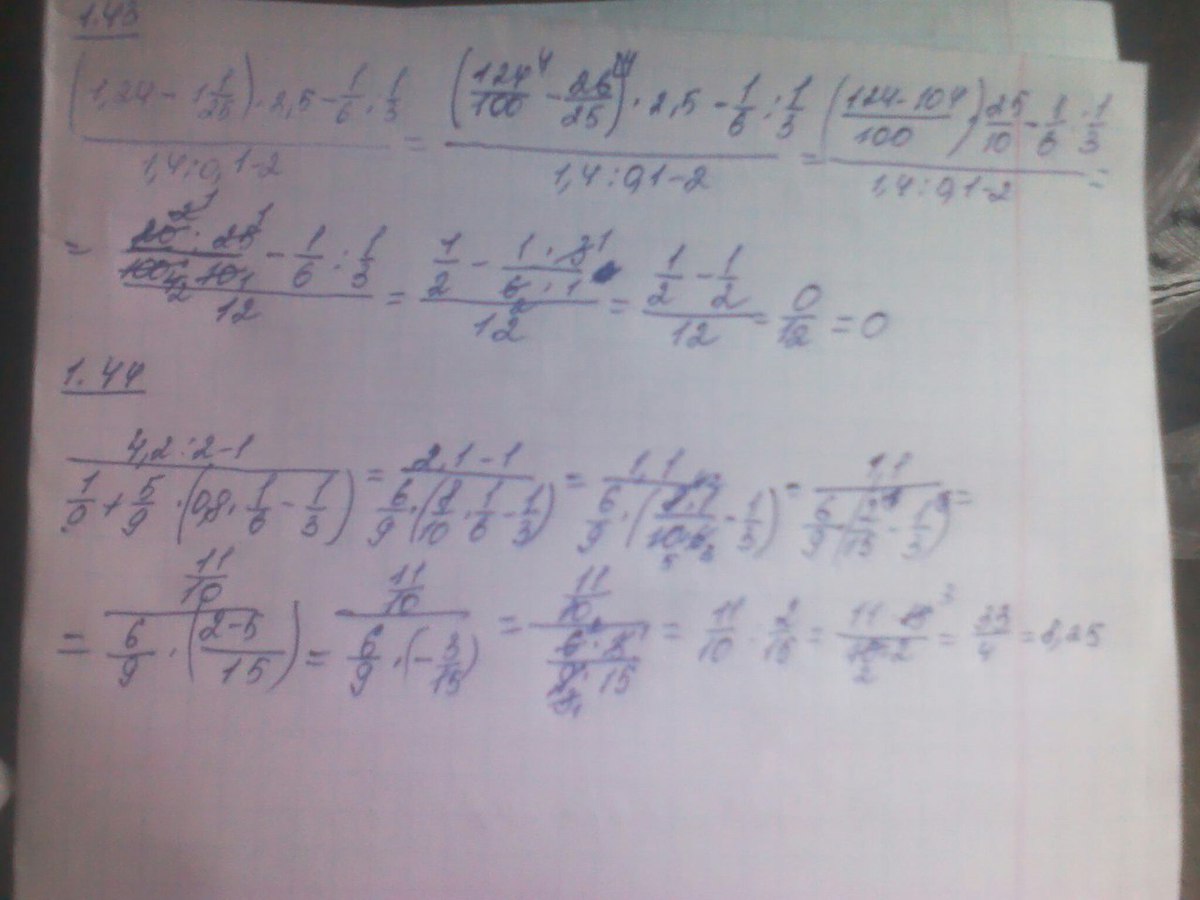 1.43
((1,24 - 1 1/25) · 2,5 - 1/6 : 1/3) / (1,4 : 0,1 - 2) = ((124/100 - 26/25) · 2,5 - 1/6 : 1/3) / (1,4 : 0,1 - 2) = (((124 - 104)/100) · 25/10 - 1/6 : 1/3) / (1,4 : 0,1 - 2) =
= ((20 · 25)/(100 · 10) - 1/6 : 1/3) / 12 = (1/2 - (1 · 3)/(6 · 1)) / 12 = (1/2 - 1/2) / 12 = 0/12 = 0
1.44
(4,2 : 2 - 1) / (1/9 + 5/9 · (0,8 · 1/6 - 1/3)) = (2,1 - 1) / (6/9 · (8/10 · 1/6 - 1/3)) = 1,1 / (6/9 · ((8 · 1)/(10 · 6) - 1/3)) = 1,1 / (6/9 (2/15 - 1/3)) =
= (11/10) / (6/9 · ((2 - 5)/15)) = (11/10) / (6/9 · (-3/15)) = (11/10) / ((6 · 3)/(9 · 15)) = 11/10 · 2/15 = (11 · 15)/(10 · 2) = 33/4 = 8,25